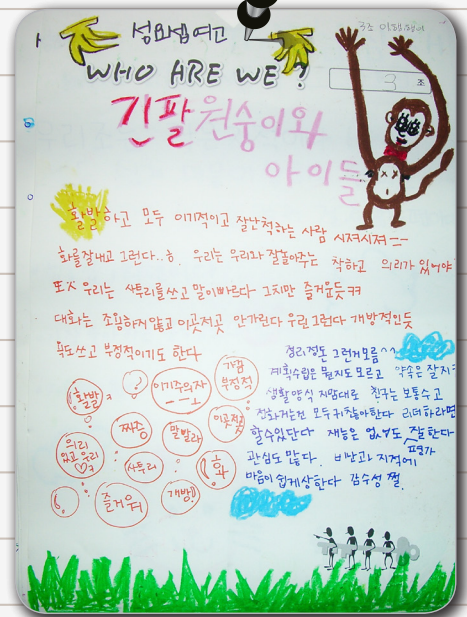 성모샘여고
WHO ARE WE?
3 조
긴팔원숭이와
아이들
활발하고 모두 이기적이고 잘난척하는 사람 시져시져
화를잘내고 그런다..ㅎ 우리는 우리와 잘놀아주는 착하고 의리가 있어야
또ㅈ 우리는 사투리를쓰고 말이빠르다 그치만 즐거운듯ㅋㅋ
대화는 조용하지않고 이곳저곳 안가린다 우린그런다 개방적인듯
욕도쓰고 부정적이기도 한다
정리정돈 그런거모름^^
계획수립은 뭔지도 모르고 약속은 잘지
생활양식 저맘대로 친구는 보통수고
전화거는건 모두귀찮아한다 리더하라면
할수있단다 재능은 없어도 잘한다
관심도 많다. 비난과 지적에
마음이 쉽게상한다 감수성 쩔
활발
?
이기주의자
가끔
부정적
의리
있고 우리
짜증
말빨라
이곳저곳
사투리
화
즐거워
개방